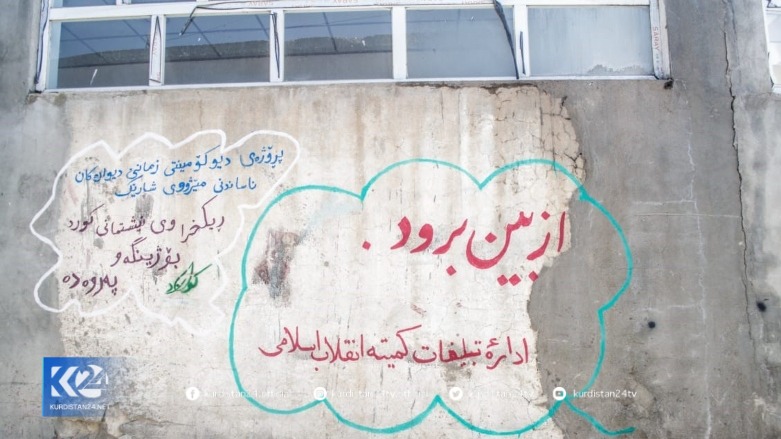 پڕۆژەی دیوکۆمێنتی زمانی دیوارەکان
ناساندنی مێژووی شارێک
ڕێکخراوی نیشتمانی کورد
بۆ ژینگە و
پەروەردە
از بین برود .
ادارهٔ تبلیغات کمیته انقلاب اسلامی
K24
KURDISTAN24.NET
kurdistan24.official
kurdistan24tv